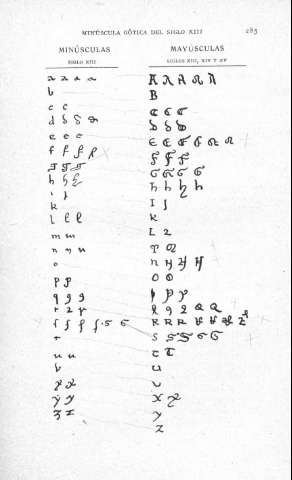 MINÚSCULA GÓTICA DEL SIGLO XIII 285
MINÚSCULAS MAYÚSCULAS
SIGLO XIII SIGLOS XIII, XIV Y XV
a a a a A A A A A
b B
c c C C C
d d d d D D D
e e e E E E E E E
f f f f F F F
g g g G G G G
h h h h h h h
i j I J
k K
l l l L L
m m M M
n n n N N N N
o O O
p p P P P
q q q Q Q Q Q Q
r r r R R R R R R R
s s s s s s S S S S S
t T T
u u U
v V
x x X X
y y Y
z z Z